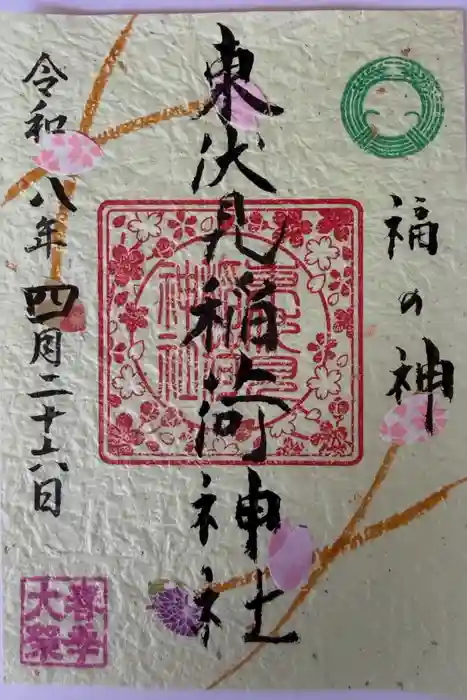 福の神
東伏見稲荷神社
東伏見稲荷神社
令和八年四月二十六日
春季大祭